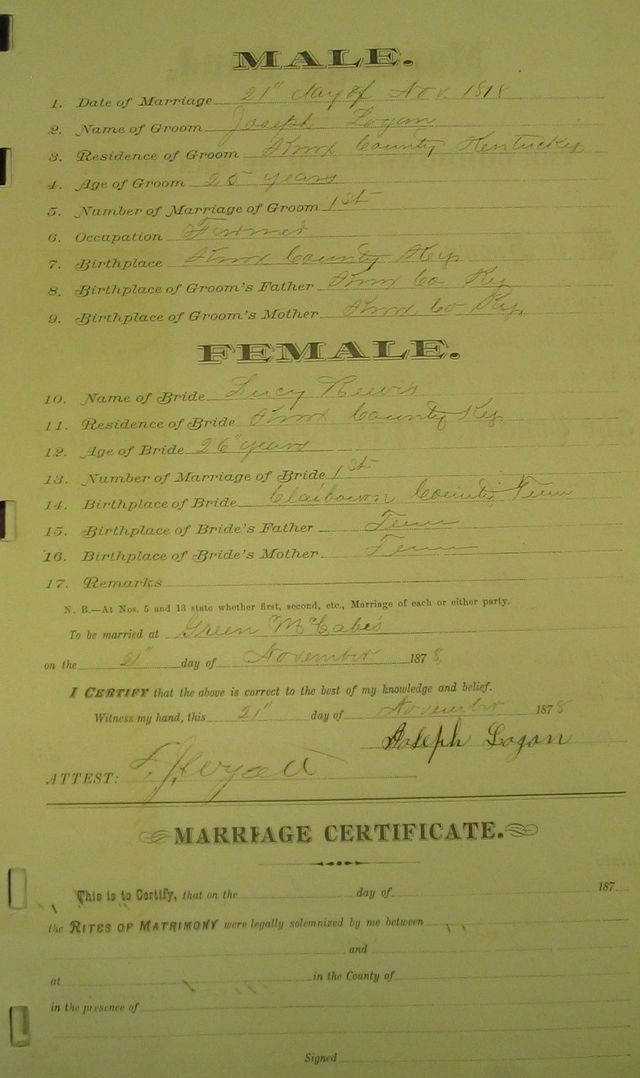 MALE.
1. Date of Marriage 21" day of Nov 1818
2. Name of Groom Joseph Logan
3. Residence of Groom Knox County Kentucky
4. Age of Groom 25 years
5. Number of Marriage of Groom 1st
6. Occupation Farmer
7. Birthplace Knox County Ky.
8. Birthplace of Groom's Father Knox Co Ky
9. Birthplace of Groom's Mother Knox Co Ky.
FEMALE.
10. Name of Bride Lucy
11. Residence of Bride Knox County Ky
12. Age of Bride 26" years
13. Number of Marriage of Bride 1st
14. Birthplace of Bride Claibourn County Tenn
15. Birthplace of Bride's Father Tenn
16. Birthplace of Bride's Mother Tenn
17. Remarks
N. B.—At Nos. 5 and 13 state whether first, second, etc., Marriage of each or either party.
To be married at Green McCabe's
on the 21" day of November 1878,
I CERTIFY that the above is correct to the best of my knowledge and belief.
Witness my hand, this 21" day of November 1878
Joseph Logan
ATTEST:
MARRIAGE CERTIFICATE.
This is to Certify, that on the day of 187
the RITES OF MATRIMONY were legally solemnized by me between
and
at in the County of
in the presence of
Signed